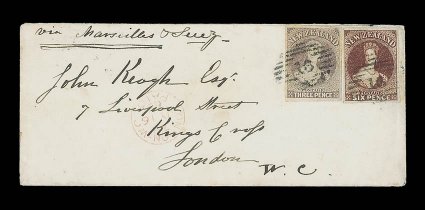 via Marseilles & Suez
NEW ZEALAND
NEW ZEALAND
THREE PENCE
SIX PENCE
John Keogh Esqr.
7 Liverpool Street
Kings Cross
London
W. C.